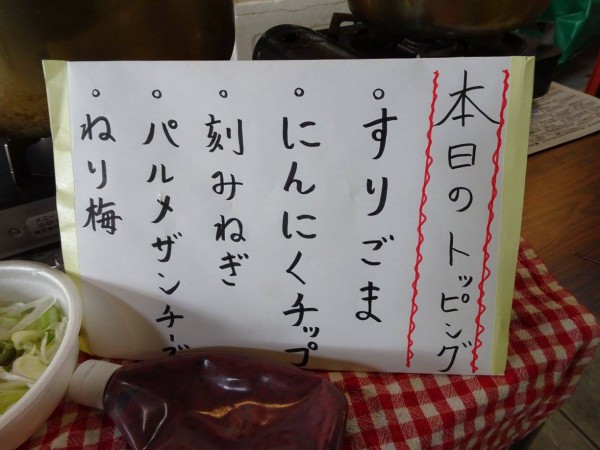 本日のトッピング
。すりごま
。にんにくチップ
。刻みねぎ
。パルメザンチーズ
。ねり梅